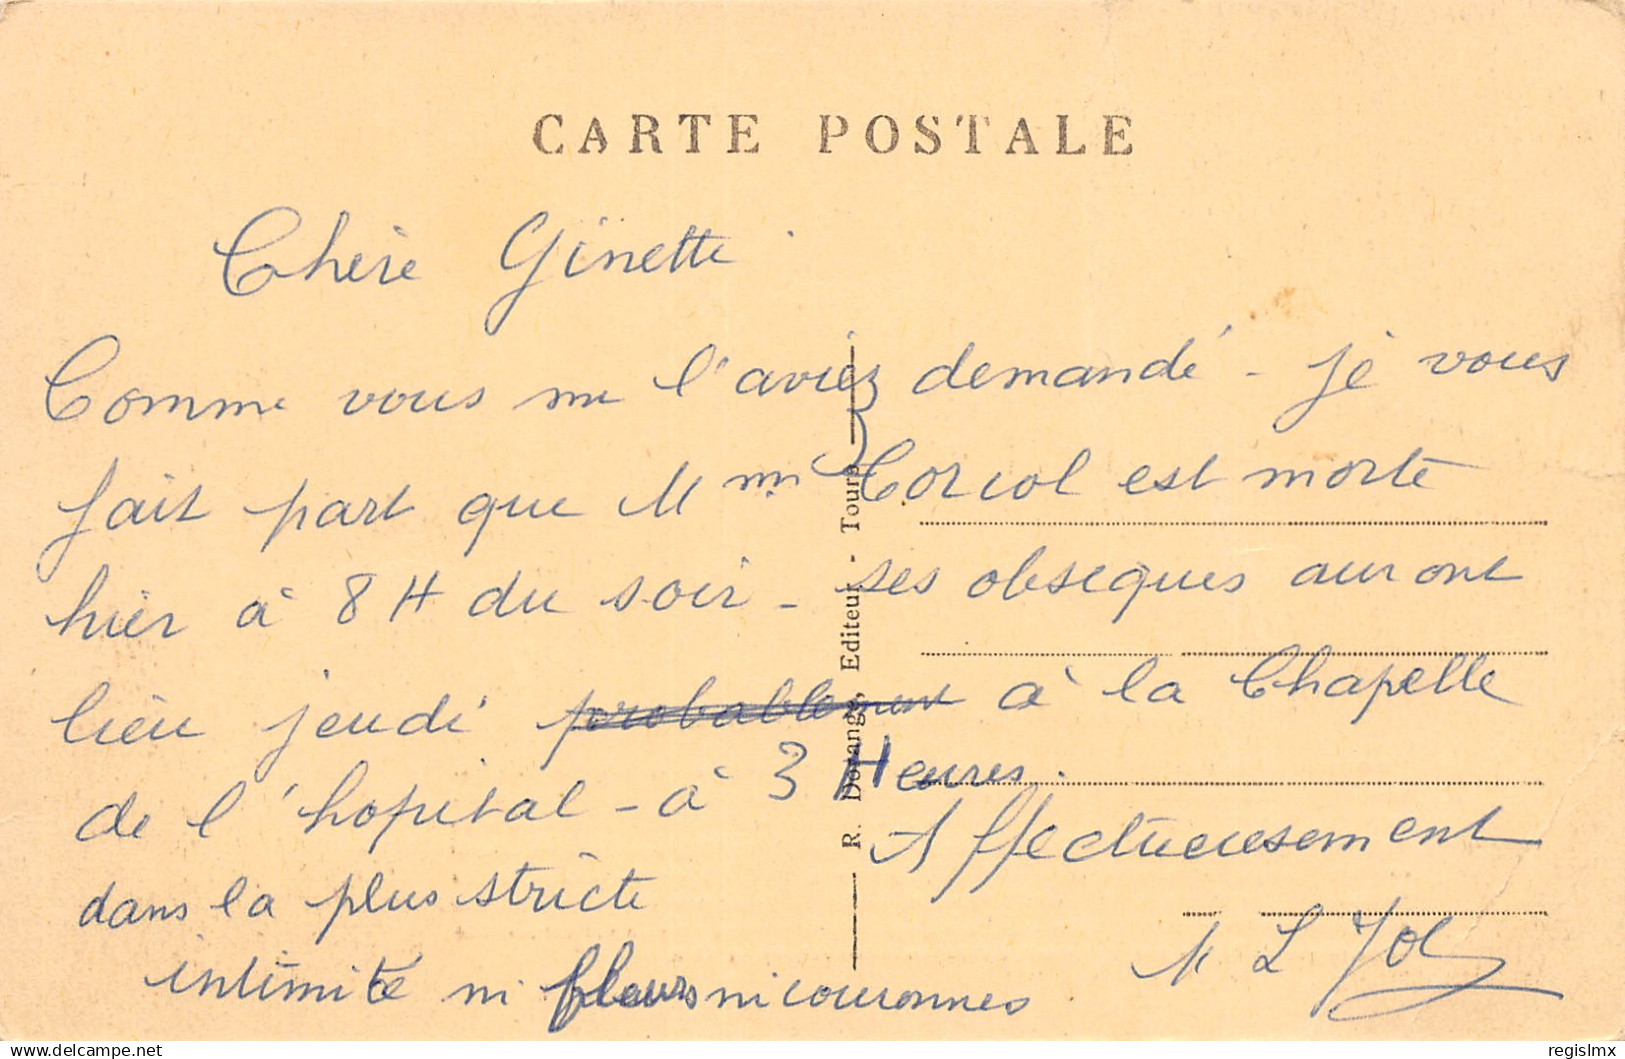 CARTE POSTALE
Chère Ginette
Comme vous me l'aviez demandé - je vous
fait part que Mme est morte
hier à 8 H du soir - ses obsèques auront
lieu jeudi probablement à la Chapelle
de l'hopital - à 3 Heures.
Affectueusement
dans la plus stricte
intimité ni fleurs ni couronnes
M L
R. Dorange, Editeur - Tours
delcampe.net
regislmx